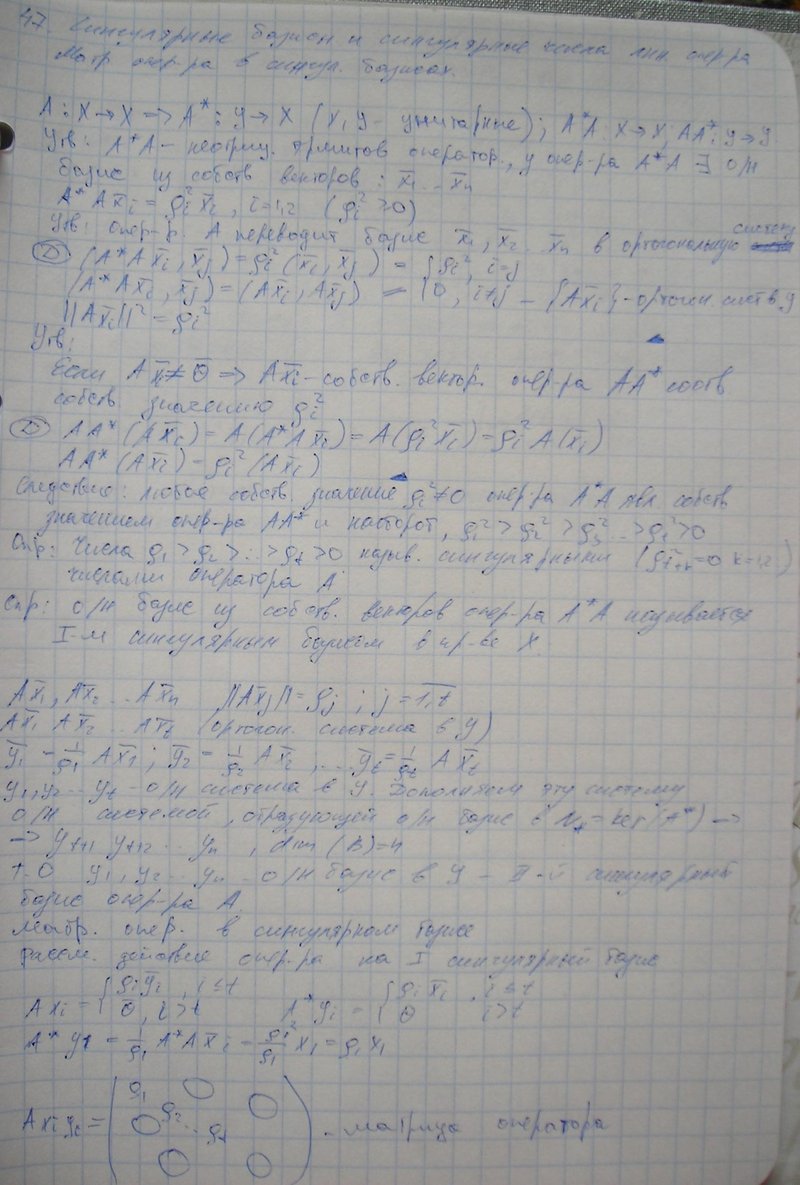 47. Сингулярные базисы и сингулярные числа лин опер-ра
Матр. опер-ра в сингул. базисах.
A: X → X => A*: Y → X (X, Y - унитарные); A*A: X → X; AA*: Y → Y
Утв: A*A - неотриц. эрмитов оператор, у опер-ра A*A ∃ о/н
базис из собств векторов: x̄₁...x̄n
A*Ax̄i = ρi² x̄i, i=1,2 (ρi² ≥ 0)
Утв: опер-р. A переводит базис x̄₁, x̄₂ ... x̄n в ортогональную систему
Ⓓ (A*Ax̄i, x̄j) = ρi² (x̄i, x̄j) = { ρi², i=j
(A*Ax̄i, x̄j) = (Ax̄i, Ax̄j) = { 0, i≠j - {Ax̄i} - ортогон сист в Y
||Ax̄i||² = ρi²
Утв:
Если Ax̄i ≠ 0̄ => Ax̄i - собств. вектор. опер-ра AA* соотв
собств значению ρi²
Ⓓ AA*(Ax̄i) = A(A*Ax̄i) = A(ρi² x̄i) = ρi² A(x̄i)
AA*(Ax̄i) = ρi² (Ax̄i)
Следствие: любое собств. значение ρi² ≠ 0 опер-ра A*A явл. собств.
значением опер-ра AA* и наоборот, ρ₁² > ρ₂² > ρ₃² ... > ρt² > 0
Опр: Числа ρ₁ > ρ₂ > ... > ρt > 0 назыв. сингулярными (ρt+k = 0 k=1,2..)
числами оператора A
Опр: о/н базис из собств. векторов опер-ра A*A называется
I-м сингулярным базисом в пр-ве X
Ax̄₁, Ax̄₂ ... Ax̄n ||Ax̄j|| = ρj ; j = 1,t
Ax̄₁ Ax̄₂ ... Ax̄t (ортогон. система в Y)
ȳ₁ = 1/ρ₁ Ax̄₁; ȳ₂ = 1/ρ₂ Ax̄₂, ... ȳt = 1/ρt Ax̄t
y₁, y₂ ... yt - о/н система в Y. Дополним эту систему
о/н системой, образующей о/н базис в N* = ker(A*) →
→ yt+1 yt+2 ... yn, dim =n
т.о. y₁, y₂ ... yn - о/н базис в Y - II-й сингулярный
базис опер-ра A
Матр. опер. в сингулярном базисе
Рассм. действие опер-ра на I сингулярный базис
Axi = { ρi ȳi, i ≤ t A*yi = { ρi x̄i, i ≤ t
{ 0̄, i > t { 0 i > t
A*y₁ = 1/ρ₁ A*Ax̄i = ρi²/ρ₁ x₁ = ρ₁ x₁
ρ₁ 0 0
A xi yi = ( 0 ρ₂ .. ρt ) - матрица оператора
0 0